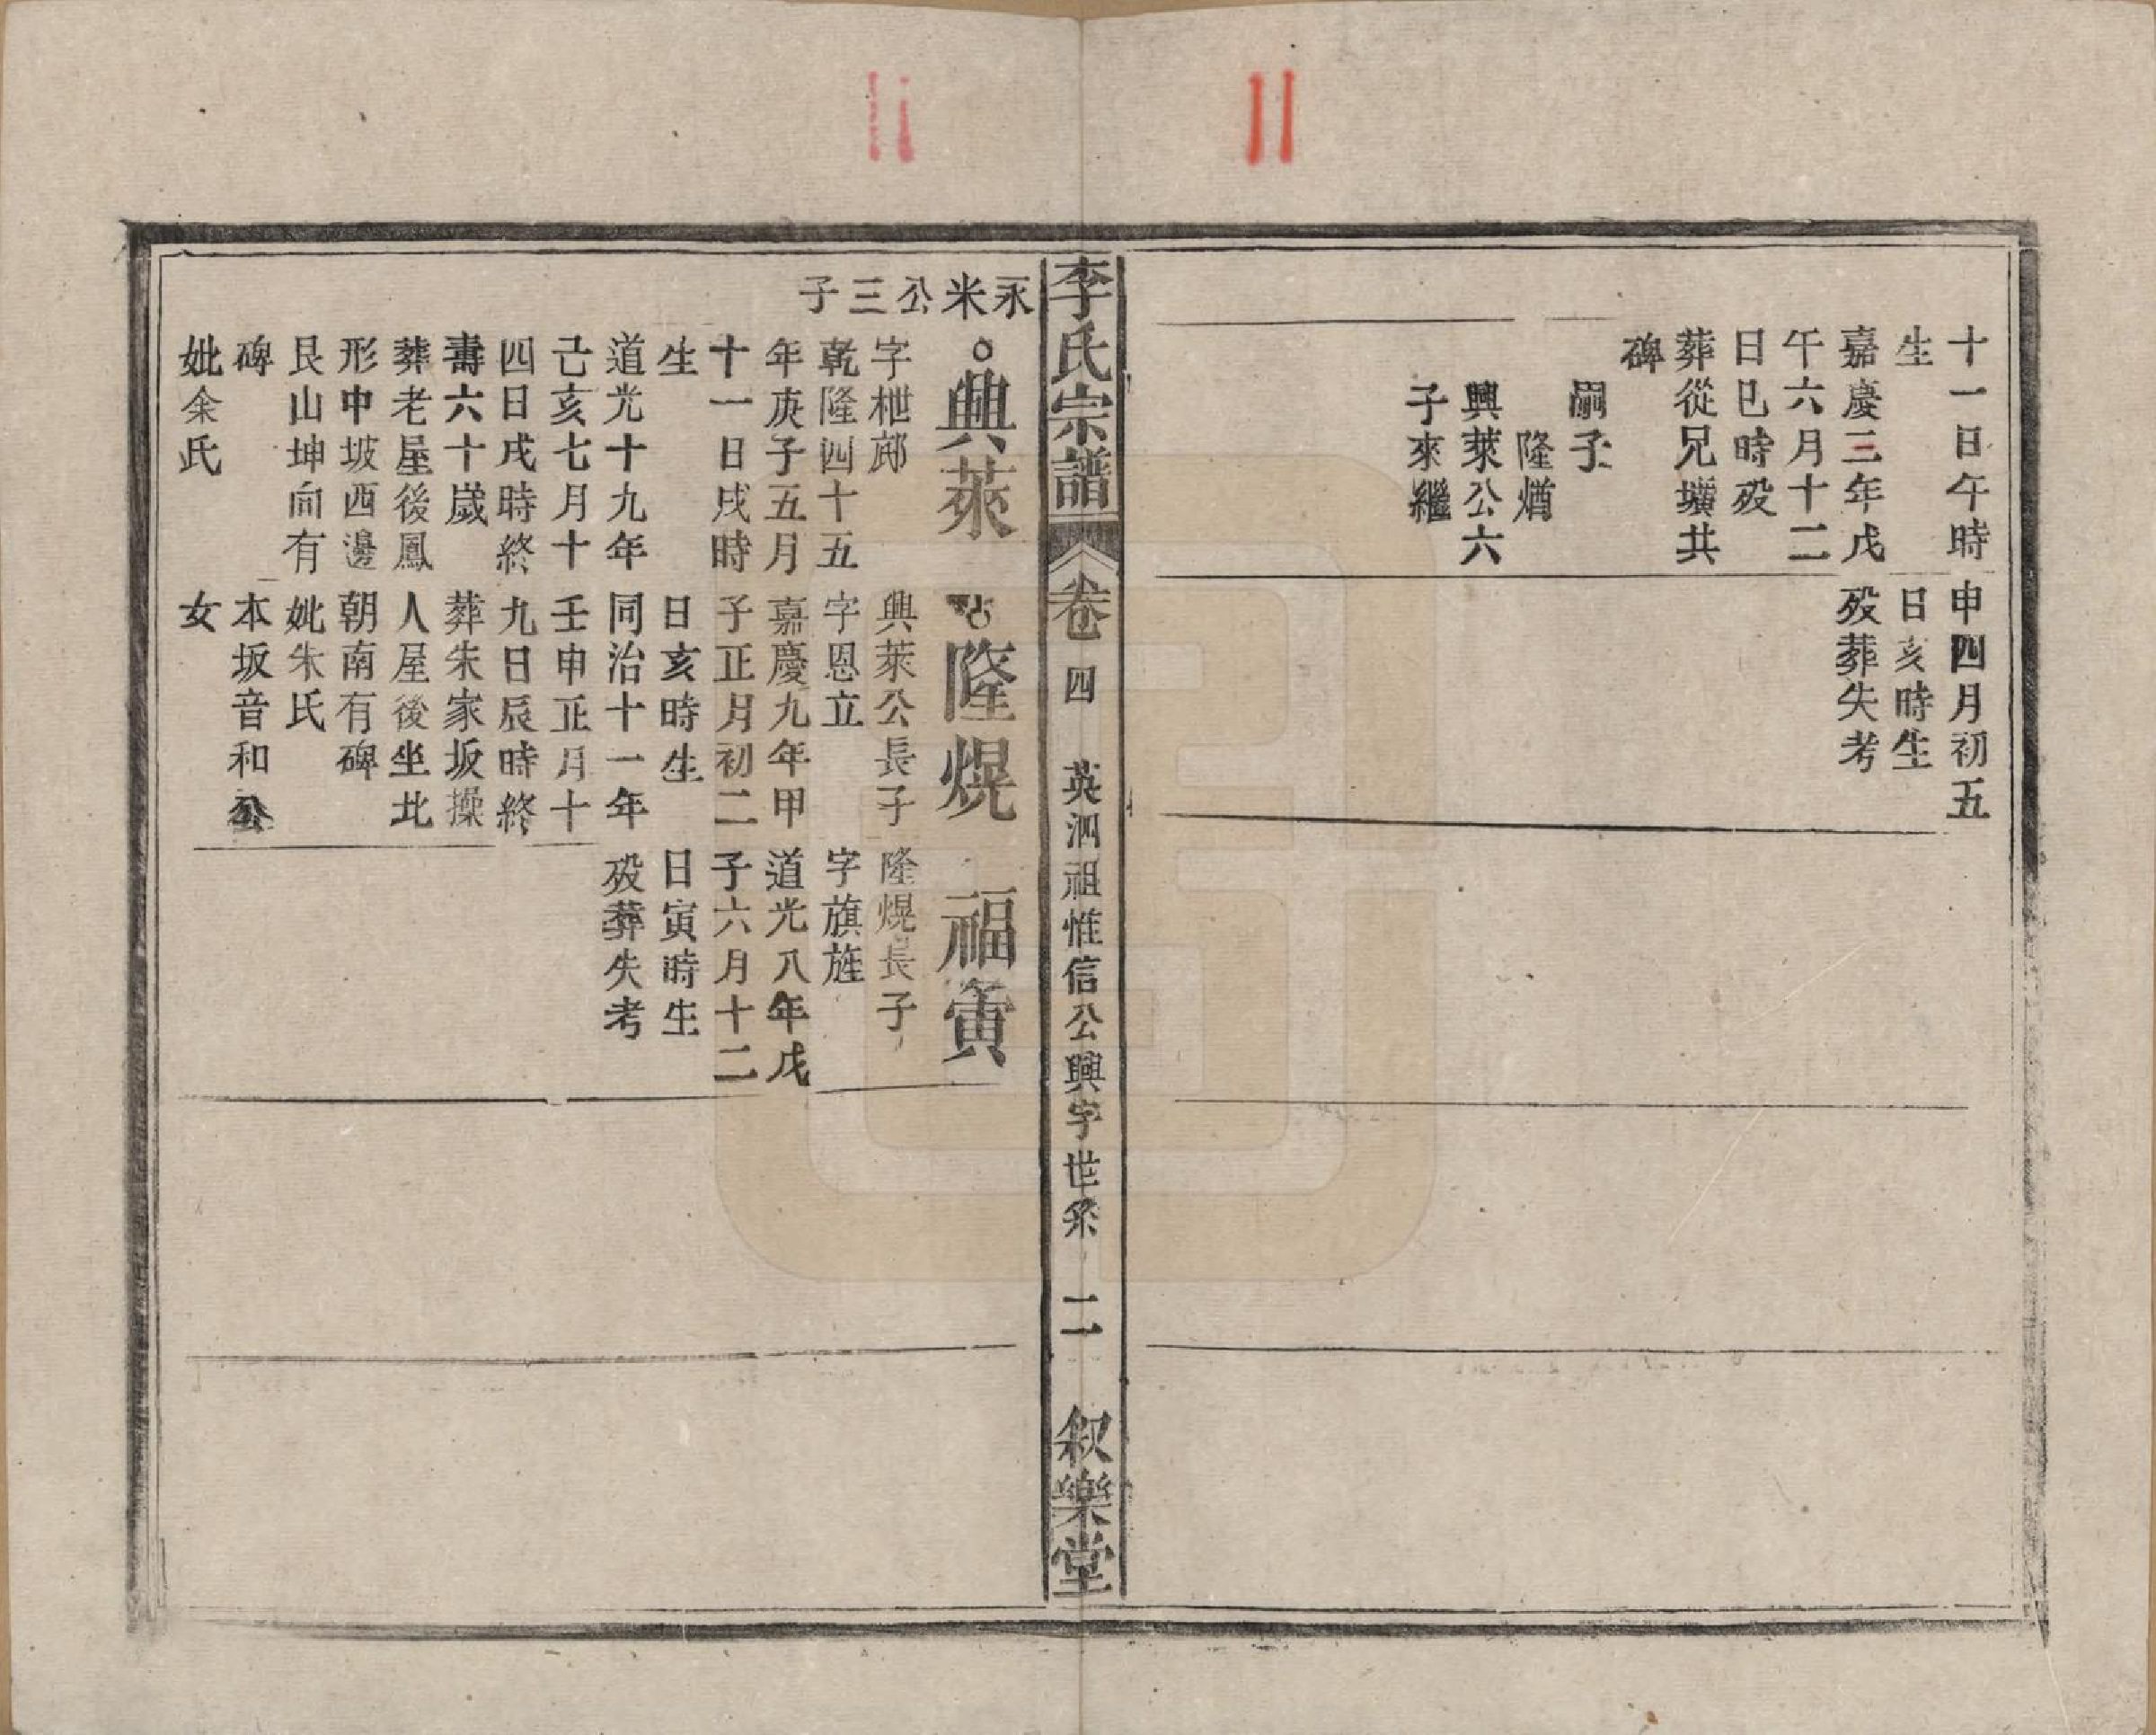 十一日午時
生
嘉慶三年戊
午六月十二
日巳時殁
葬從兄壙共
碑
嗣子
隆熷
興萊公六
子來繼
申四月初五
日亥時生
殁葬失考
李氏宗譜
卷四
英泗祖惟信公興字世系
二
叙樂堂
永米公三子
興萊
字枻郕
乾隆四十五
年庚子五月
十一日戌時
生
道光十九年
己亥七月十
四日戌時終
壽六十歲
葬老屋後鳳
形中坡西邊
艮山坤向有
碑
妣余氏
隆熀
興萊公長子
字恩立
嘉慶九年甲
子正月初二
日亥時生
同治十一年
壬申正月十
九日辰時終
葬朱家坂操
人屋後坐北
朝南有碑
妣朱氏
本坂音和公
女
福寅
隆熀長子
字旗旌
道光八年戊
子六月十二
日寅時生
殁葬失考